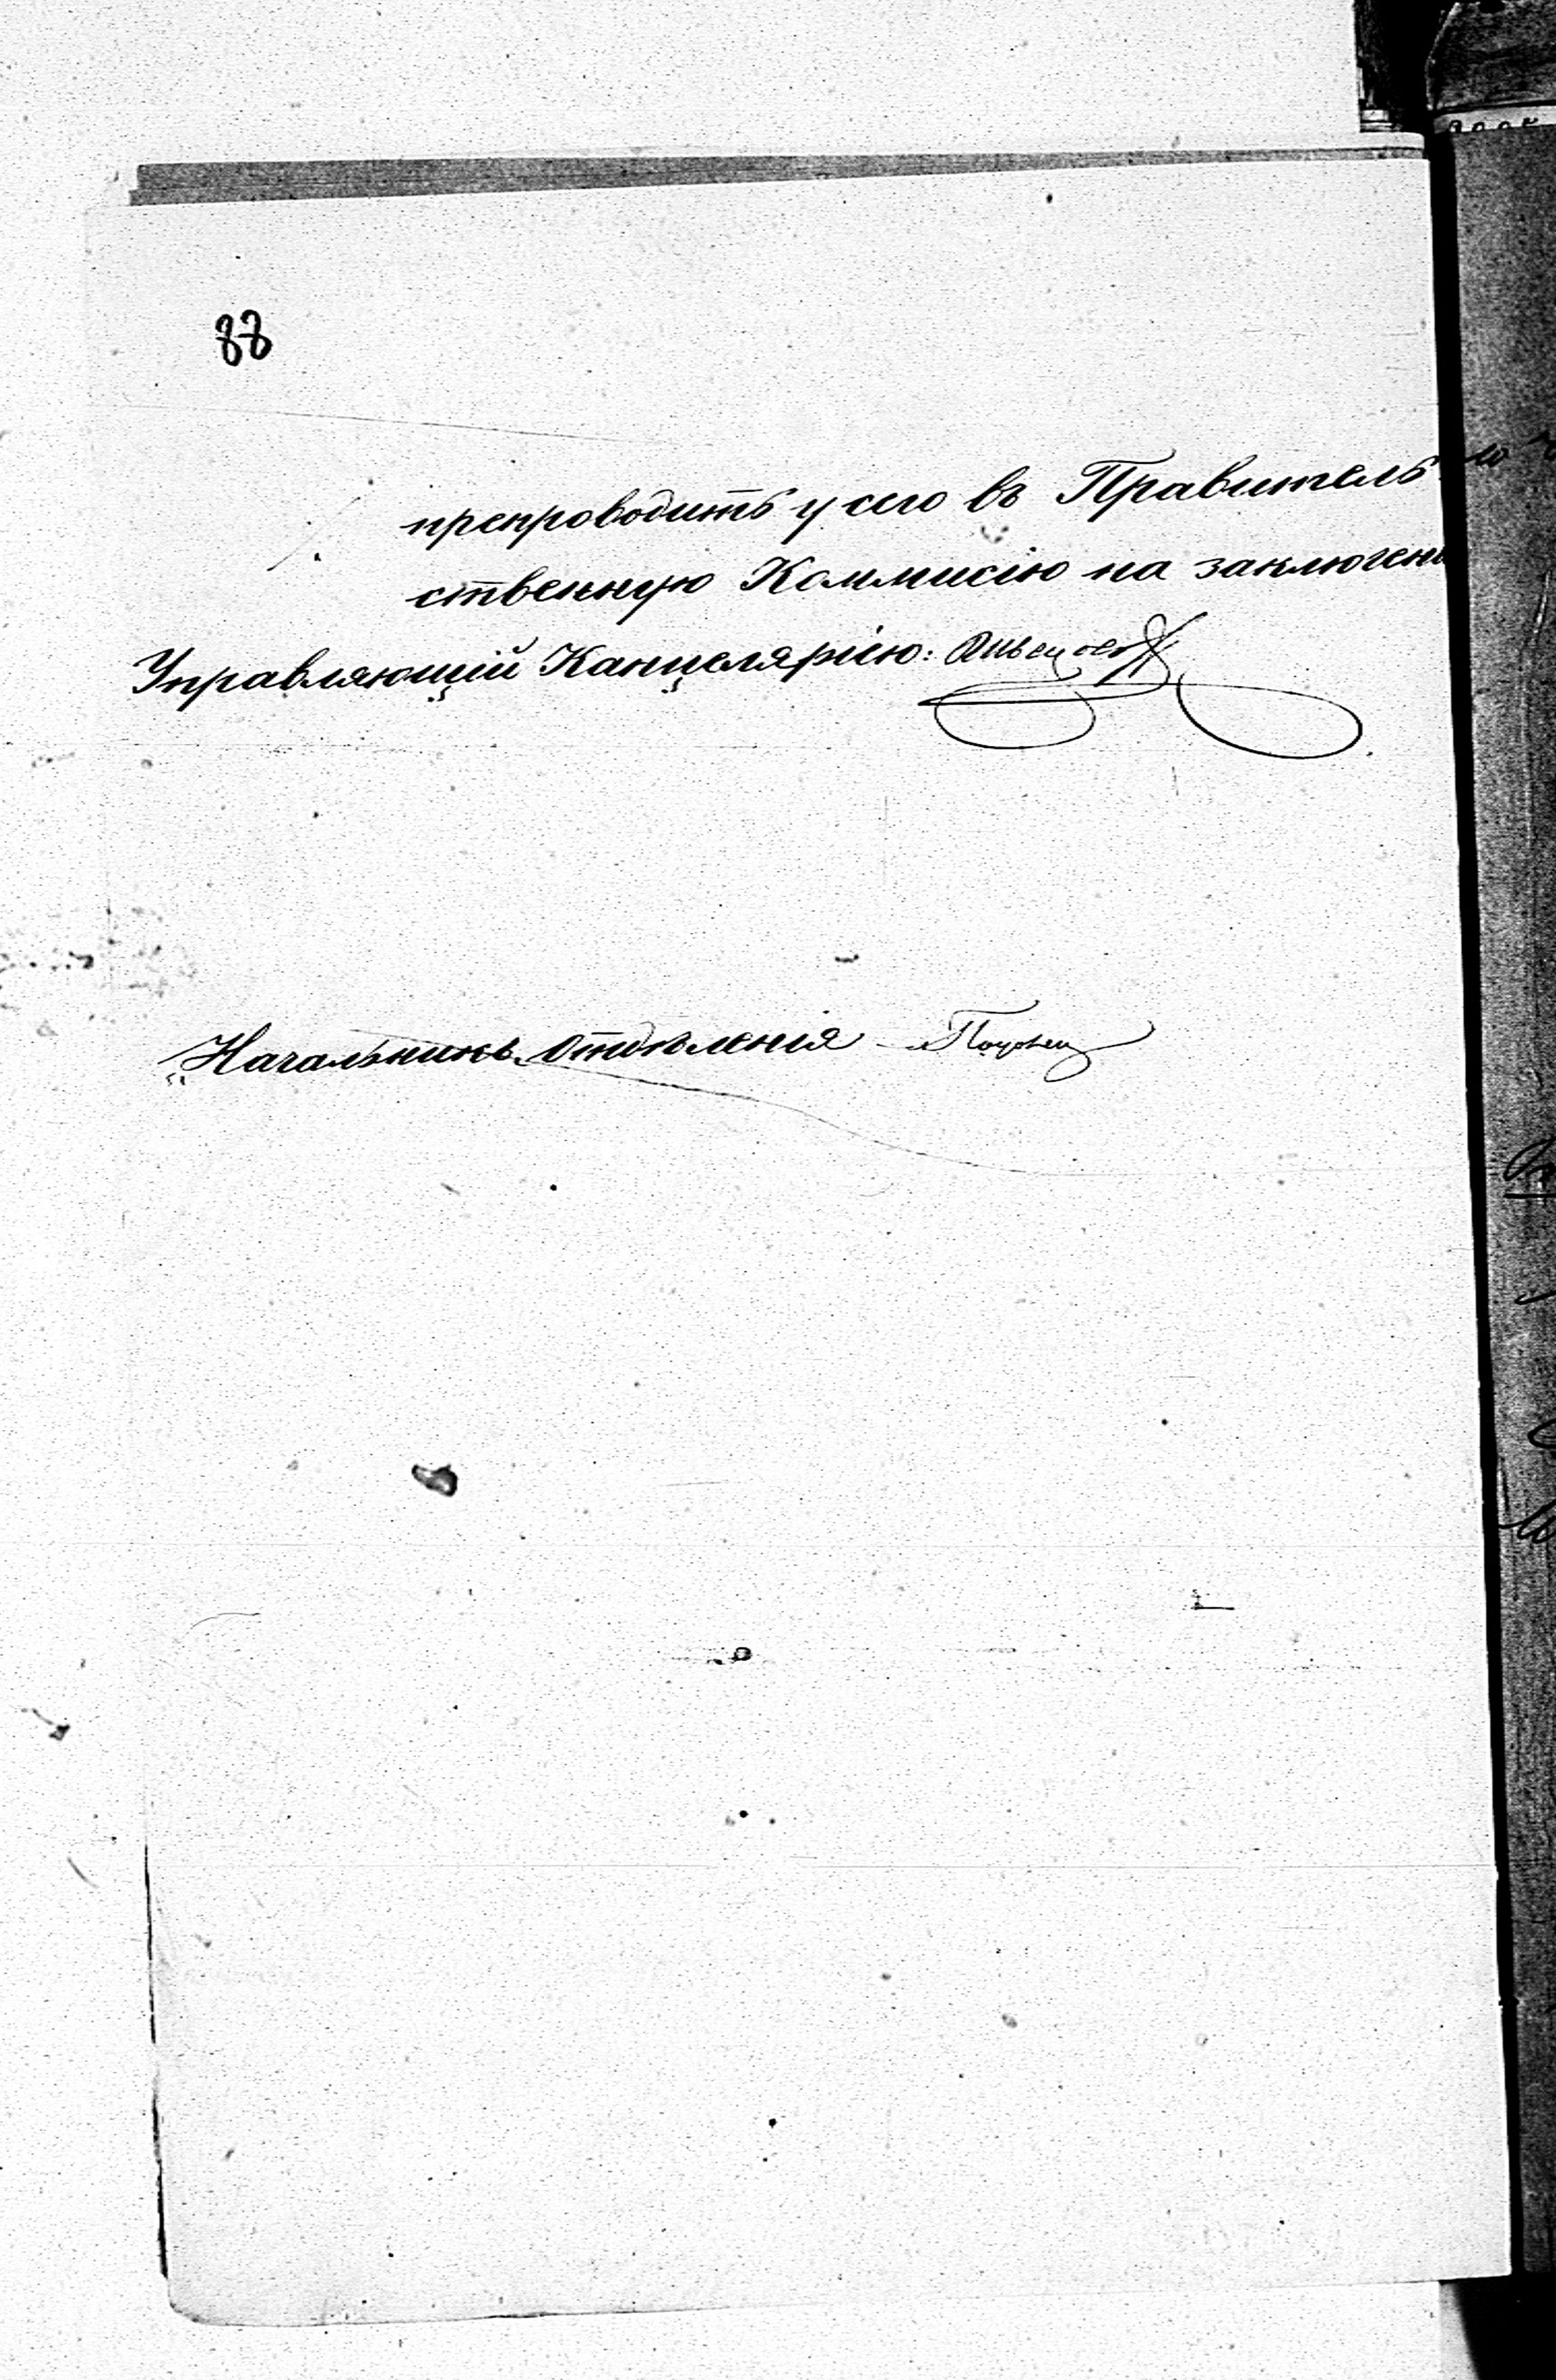 88
препроводить у сего въ Правитель-
ственную Коммисію на заключені
Управляющій Канцеляріею:
Начальникъ Отдѣленія